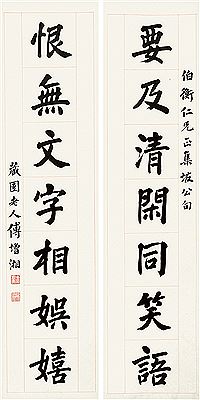 要及清閑同笑語
伯衡仁兄正集坡公句
恨無文字相娛嬉
藏園老人傅增湘